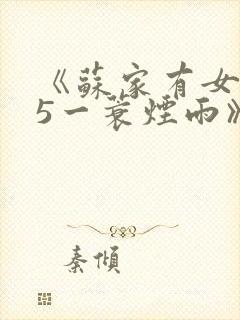 《蘇家有女
5一蓑煙雨》
秦傾